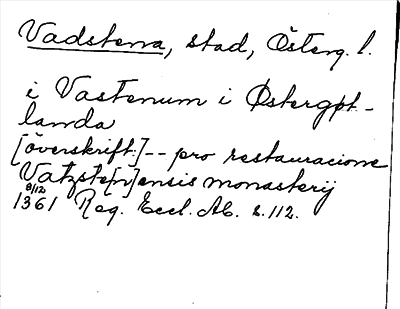 Vadstena, stad, Österg. l.
i Vastenum i Østergøt-
landa
[överskrift:] -- pro restauracione
Vatzste[n]ensis monasterij
8/12
1361 Reg. Eccl. Ab. s. 112.